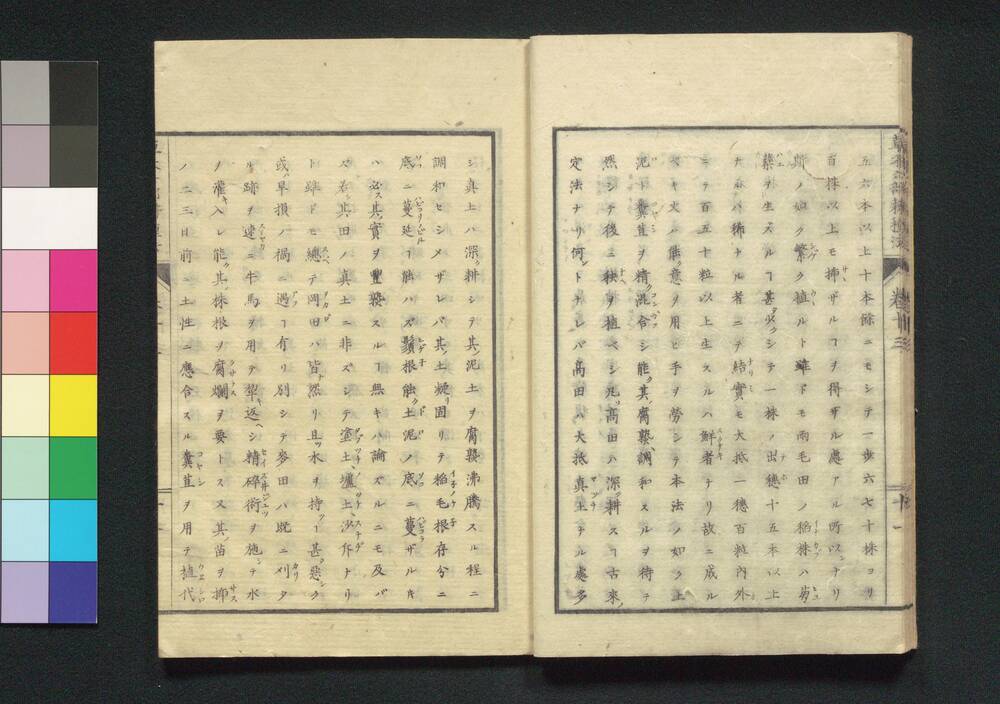 五六本以上十本餘ニモシテ一步六七十株ヨリ
百株以上モ挿ザルヿヲ得ザル處アル所以ナリ
斯ノ如ク繁ク植ルト雖ドモ兩毛田ノ稻株ハ
蘖ヲ生ズルヿ甚少クシテ一株ノ出穗十五本以上
ナルハ稀ナル者ニテ結實モ大抵一穗百粒內外
ニテ百五十粒以上生スルハ鮮者ナリ故ニ成ル
ベキ火ハ能意ヲ用ヒ手ヲ勞シテ本法ノ如ク上
泥ト糞苴ヲ精混合シ能其腐熟調和スルヲ待テ
然シテ後ニ秧ヲ植ベシ凡高田ハ深耕スヿ古來ノ
定法ナリ何ントナレバ高田ハ大抵真土ナル處多
シ真土ハ深ク耕シテ其泥土ヲ腐熟沸騰スル程ニ
調和セシメザレバ其土硬リ固リテ稻毛根存分ニ
底ニ蔓延ヿ能ハズ鬚根能土泥ノ底ニ蔓ザルキ
ハ必ズ其實ヲ豐熟スルヿ無キハ論ズルニモ及バ
ズ若其田ノ真土ニ非ズシテ塗土壚土沙斥ナリ
ト雖ドモ總テ岡田ハ皆然リ且ツ水ヲ持ツヿ甚惡シク
或ハ旱損ノ禍ニ遇ヿ有リ別シテ麥田ハ既ニ刈タ
ル跡ヲ速ニ牛馬ヲ用テ犂返シ精碎術ヲ施シテ水
ヲ灌入レ能其株根ヲ腐爛ヲ要トス又其苗ヲ挿
ノ二三日前ニ土性ニ應合スル糞苴ヲ用テ植代